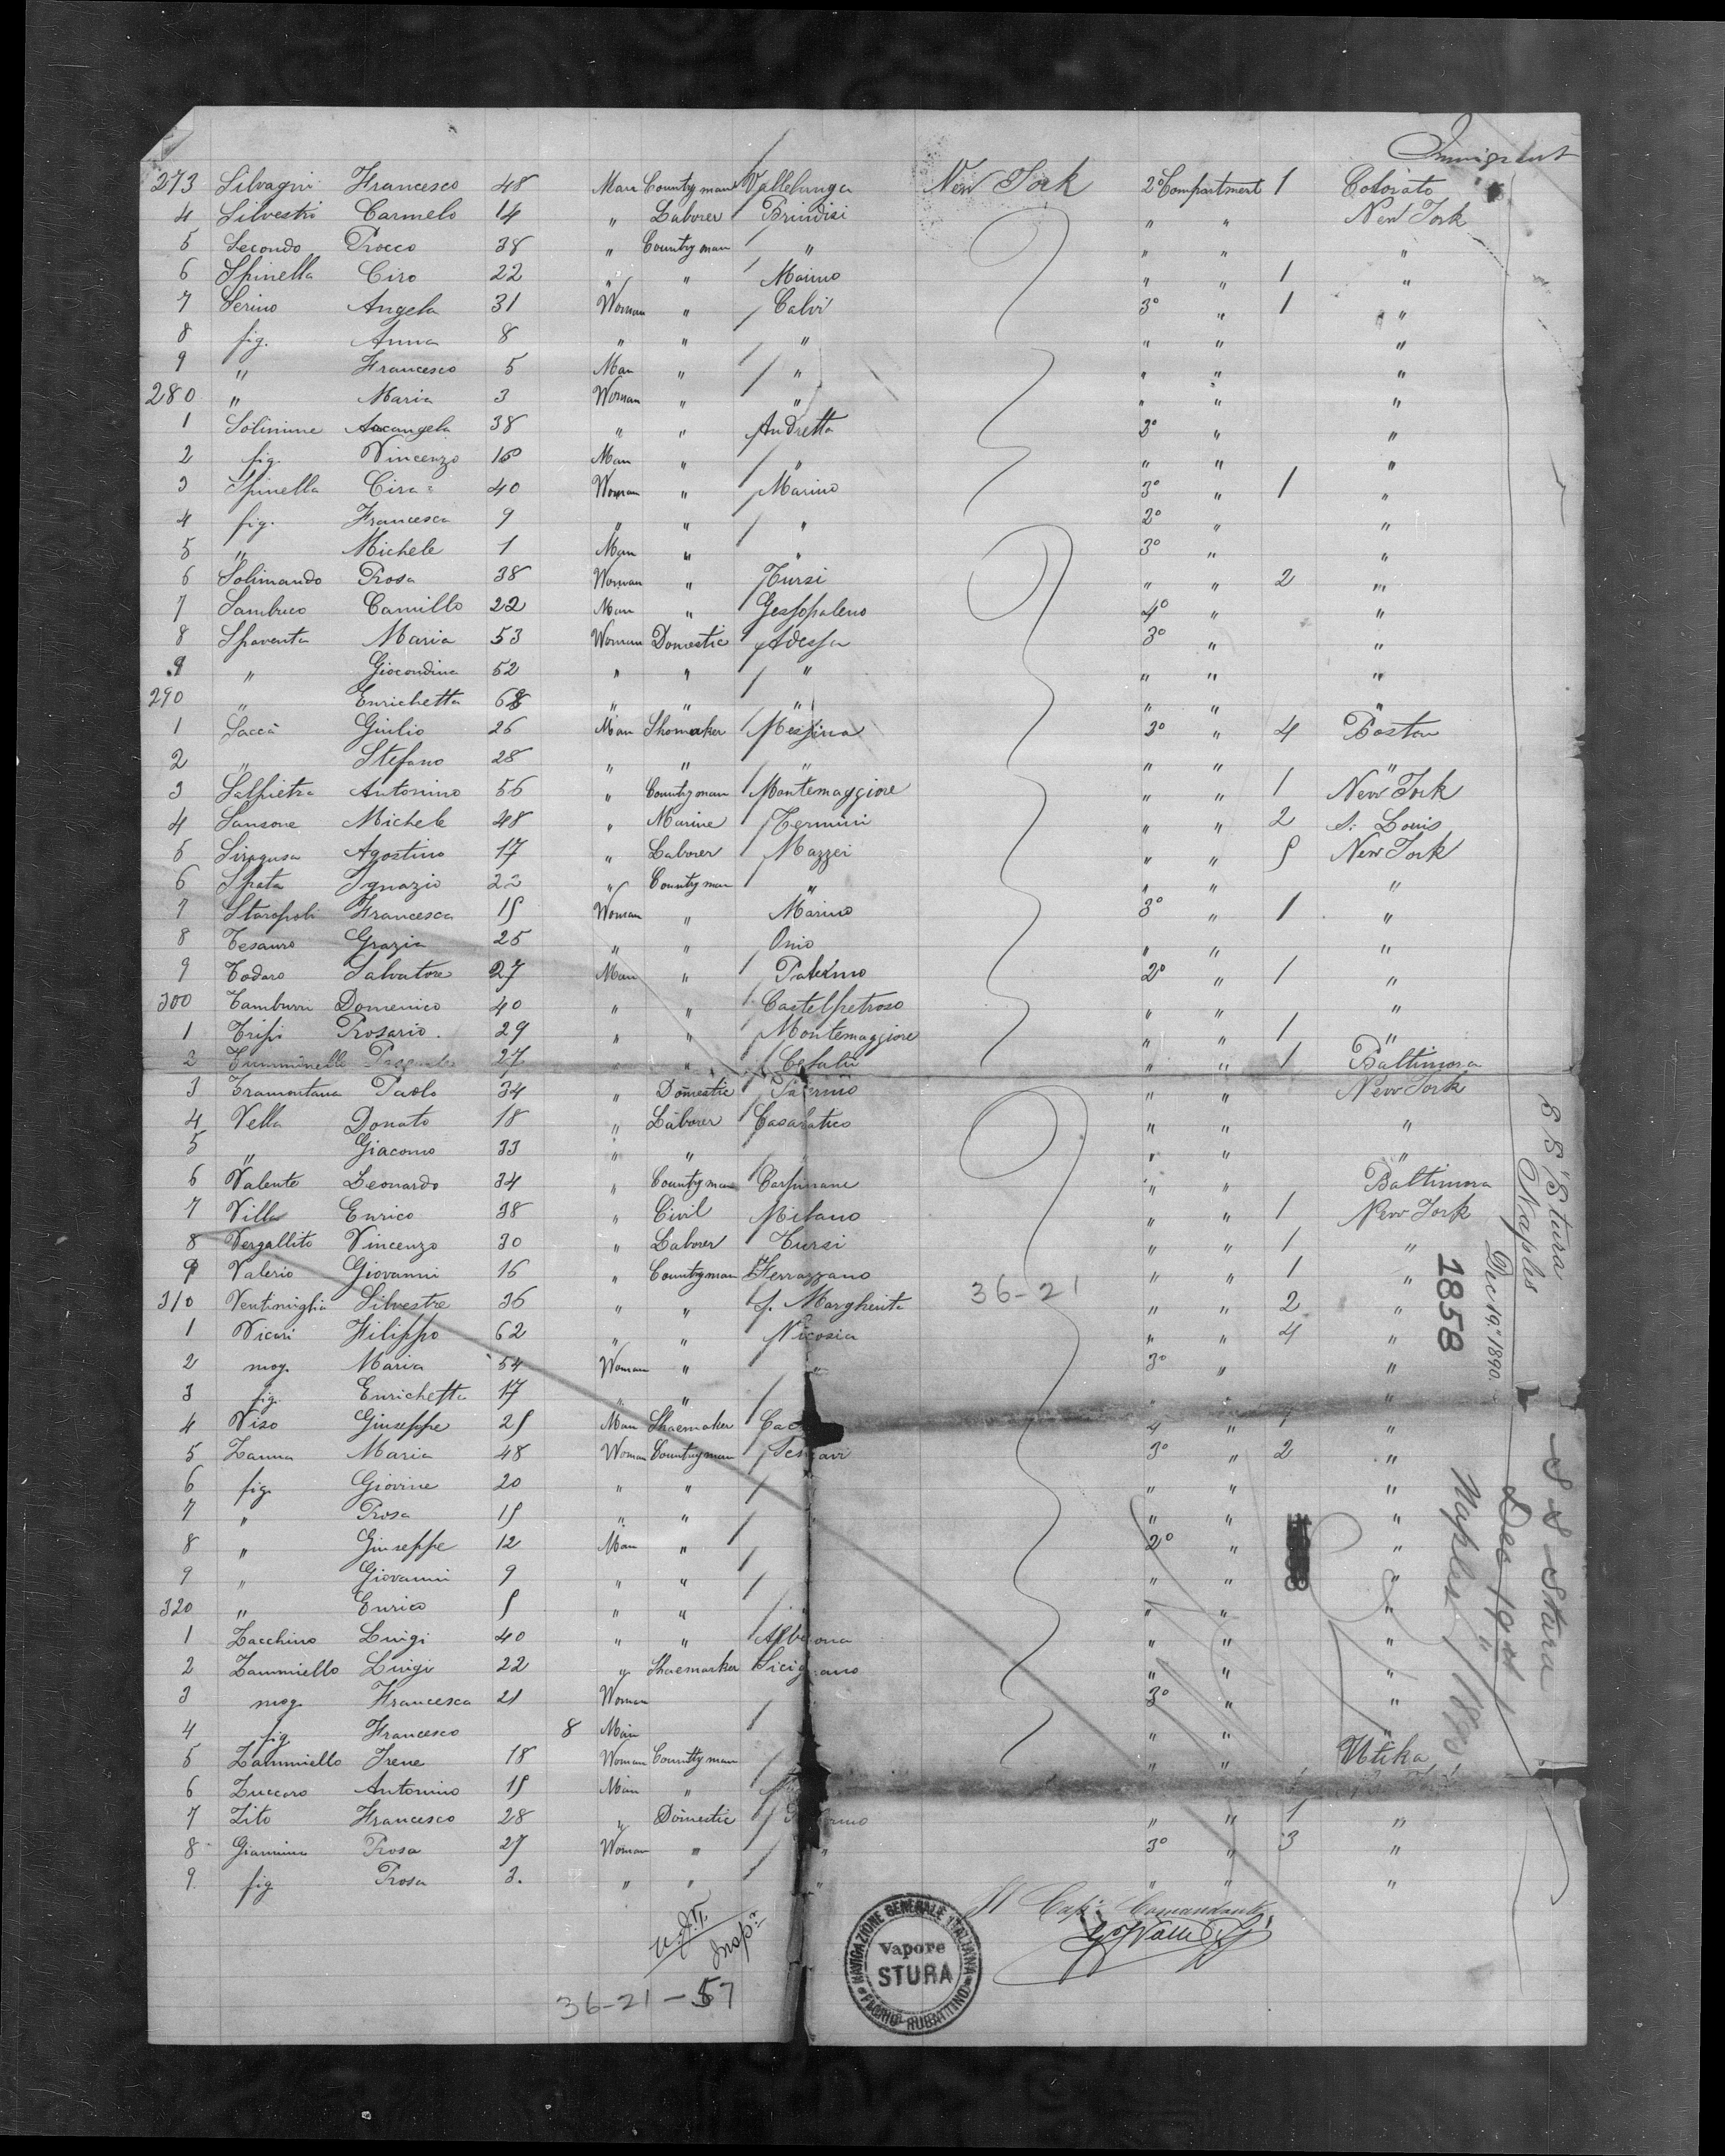 Immigrant
273 Silvagni Francesco 48 Man Countryman Vallelunga New York 2° Compartment 1 Colorato
4 Silvestri Carmelo 14 " Laborer Brindisi " " New York
5 Secondo Rocco 38 " Countryman " " " "
6 Spinella Ciro 22 " " Marino " " 1 "
7 Serino Angela 31 Woman " Calvi 3° " 1 "
8 fig. Anna 8 " " " " " "
9 " Francesco 5 Man " " " " "
280 " Maria 3 Woman " " " " "
1 Solimine Arcangela 38 " " Andretta 2° " "
2 fig. Vincenzo 10 Man " " " " "
3 Spinella Cira 40 Woman " Marino 3° " 1 "
4 fig. Francesca 9 " " " 2° " "
5 " Michele 1 Man " " 3° " "
6 Solimando Rosa 38 Woman " Tursi " " 2 "
7 Sambuco Camillo 22 Man " Gessopaleno 4° " "
8 Spaventa Maria 53 Woman Domestic Adessa 3° " "
9 " Giocondina 52 " " " " " "
290 " Enrichetta 68 " " " " " "
1 Saccà Giulio 26 Man Shomaker Messina 3° " 4 Boston
2 " Stefano 28 " " " " " "
3 Salpietra Antonino 56 " Countryman Montemaggiore " " 1 New York
4 Sansone Michele 48 " Marine Termini " " 2 S. Louis
5 Siragusa Agostino 17 " Laborer Mazzei " " 5 New York
6 Spata Ignazio 22 " Countryman " " " "
7 Staropoli Francesca 15 Woman " Marino 3° " 1 "
8 Tesauro Grazia 25 " " Onio " " "
9 Todaro Salvatore 27 Man " Palermo 2° " 1 "
300 Tamburri Domenico 40 " " Castelpetroso " " "
1 Tripi Rosario 29 " " Montemaggiore " " 1 "
2 Tumminello 27 " " Cefalù " " 1 Baltimora
3 Tramontana Paolo 34 " Domestic Palermo " " New York
4 Vella Donato 18 " Laborer Casaratico " " "
5 " Giacomo 33 " " " " "
6 Valente Leonardo 34 " Countryman Carpinane " " Baltimora
7 Villa Enrico 38 " Civil Milano " " 1 New York
8 Vergallito Vincenzo 30 " Laborer Tursi " " 1 "
9 Valerio Giovanni 16 " Countryman Ferrazzano " " 1 "
310 Ventimiglia Silvestre 36 " " S. Margherita 36-21 " " 2 "
1 Vicari Filippo 62 " " Nicosia " " 4 "
2 mog. Maria 54 Woman " " 3° " "
3 fig. Enrichetta 17 " " " "
4 Viso Giuseppe 25 Man Shaemaker 4 " 1 "
5 Zanna Maria 48 Woman Countryman 3° " 2 "
6 fig. Giovine 20 " " " " "
7 " Rosa 15 " " " " "
8 " Giuseppe 12 Man " 2° " "
9 " Giovanni 9 " " " " "
320 " Enrico 5 " " " " "
1 Zacchino Luigi 40 " " Alberona " " "
2 Zammiello Luigi 22 " Shaemarker Sicignano " " "
3 mog. Francesca 21 Woman 3° " "
4 fig. Francesco 8 Man " " "
5 Zammiello Irene 18 Woman Counttyman " " Utika
6 Zuccaro Antonino 15 Man "
7 Zito Francesco 28 " Domestic " " 1 "
8 Giannina Rosa 27 Woman " " 3° " 3 "
9 fig Rosa 3. " " " " " "
Il Cap. Comandante
36-21-57
NAVIGAZIONE GENERALE ITALIANA
Vapore
STURA
FLORIO RUBATTINO
S S "Stura
Naples
Dec 19" 1890
1858
S S Stura
Dec 19"
Naples / 1890